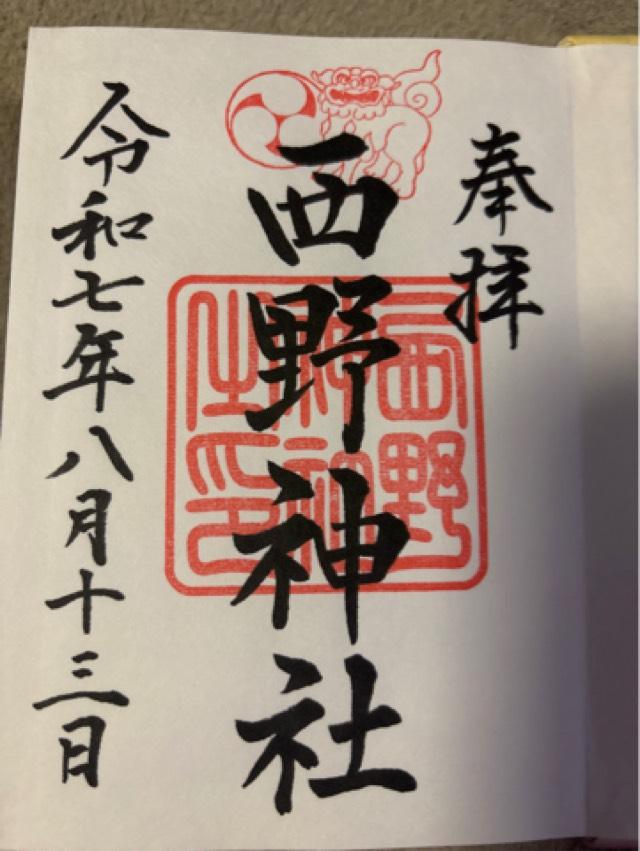 奉拝
西野神社
令和七年八月十三日
西野
神社
之印